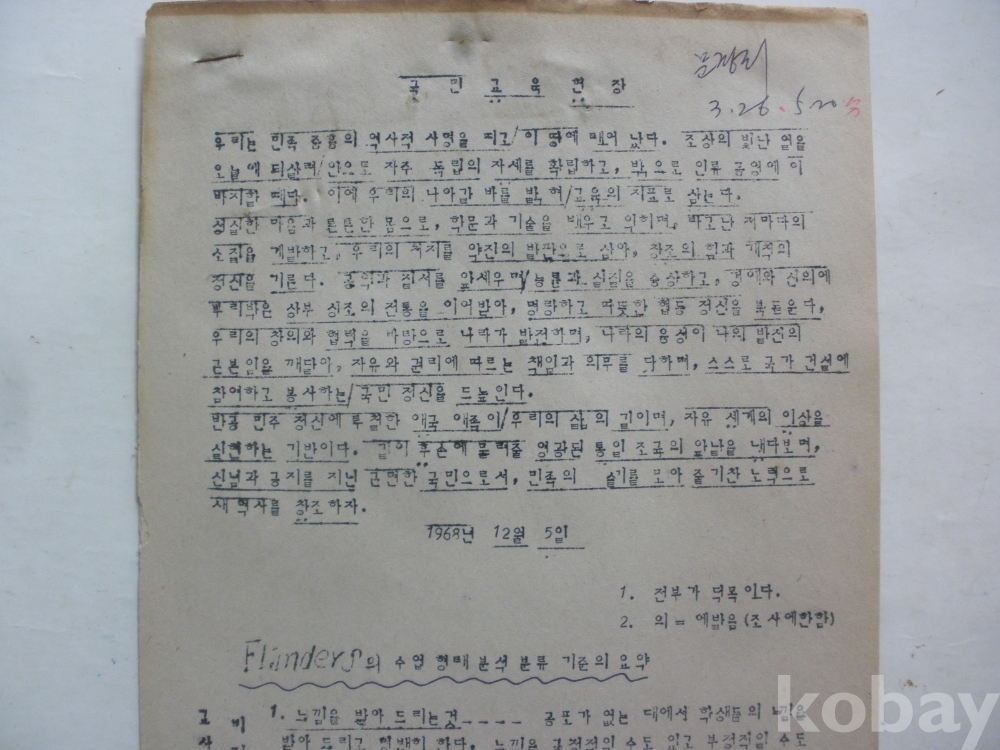 국민교육헌장
3.26. 5.20
우리는 민족 중흥의 역사적 사명을 띠고/이 땅에 태어 났다. 조상의 빛난 얼을
오늘에 되살려/안으로 자주 독립의 자세를 확립하고, 밖으로 인류 공영에 이
바지할 때다. 이에 우리의 나아갈 바를 밝혀/교육의 지표로 삼는다.
성실한 마음과 튼튼한 몸으로, 학문과 기술을 배우고 익히며, 타고난 저마다의
소질을 계발하고, 우리의 처지를 약진의 발판으로 삼아, 창조의 힘과 개척의
정신을 기른다. 공익과 질서를 앞세우며/능률과 실질을 숭상하고, 경애와 신의에
뿌리박은 상부 상조의 전통을 이어받아, 명랑하고 따뜻한 협동 정신을 북돋운다,
우리의 창의와 협력을 바탕으로 나라가 발전하며, 나라의 융성이 나의 발전의
근본임을 깨달아, 자유와 권리에 따르는 책임과 의무를 다하며, 스스로 국가 건설에
참여하고 봉사하는/국민 정신을 드높인다.
반공 민주 정신에 투철한 애국 애족이/우리의 삶의 길이며, 자유 세계의 이상을
실현하는 기반이다. 길이 후손에 물려줄 영광된 통일 조국의 앞날을 내다보며,
신념과 긍지를 지닌 근면한 국민으로서, 민족의 슬기를 모아 줄기찬 노력으로
새 역사를 창조하자.
1968년 12월 5일
1. 전부가 덕목이다.
2. 의 = 에발음 (조사에한함)
Flanders의 수업 형태 분석 분류 기준의 요약
교 비 1. 느낌을 받아 드리는것---- 공포가 없는 대에서 학생들의 느낌을
사 받아 드리고 명백히 한다. 느낌은 긍정적일 수도 있고 부정적일 수도
kobay